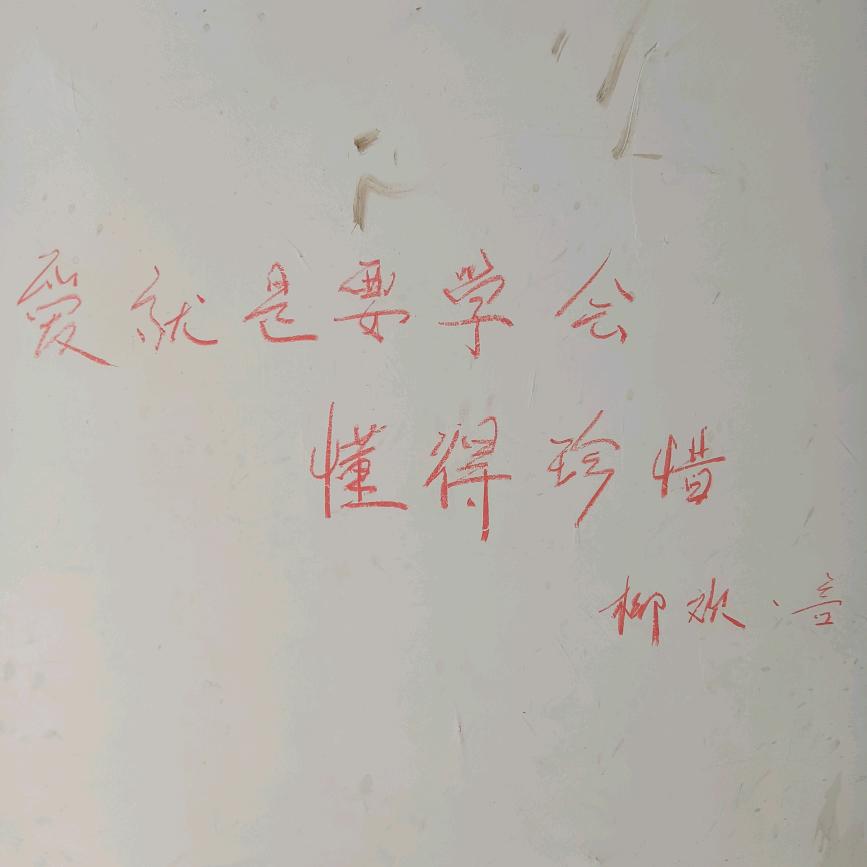 爱就是要学会
懂得珍惜
柳欢·言